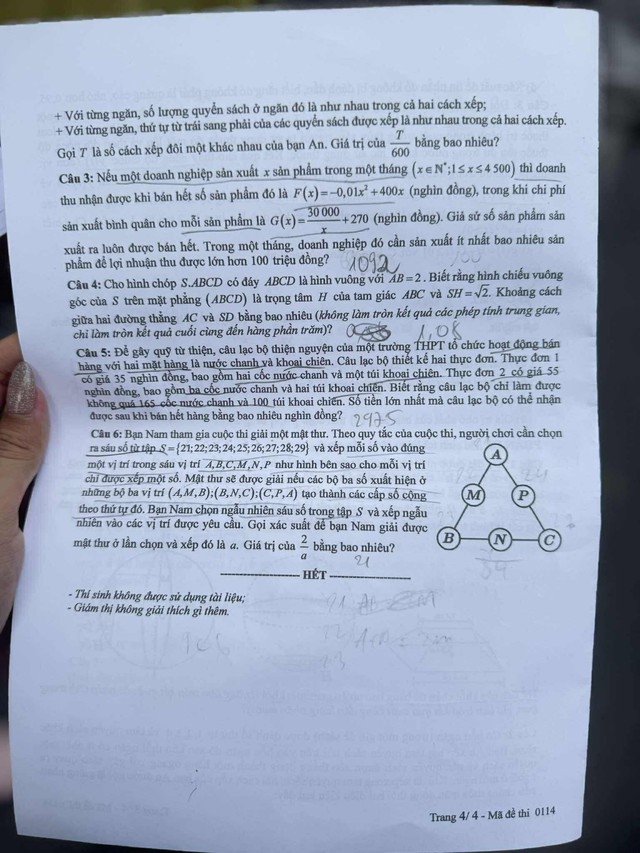 + Với từng ngăn, số lượng quyển sách ở ngăn đó là như nhau trong cả hai cách xếp;
+ Với từng ngăn, thứ tự từ trái sang phải của các quyển sách được xếp là như nhau trong cả hai cách xếp.
Gọi T là số cách xếp đôi một khác nhau của bạn An. Giá trị của T/600 bằng bao nhiêu?
Câu 3: Nếu một doanh nghiệp sản xuất x sản phẩm trong một tháng (x ∈ N*; 1 ≤ x ≤ 4 500) thì doanh
thu nhận được khi bán hết số sản phẩm đó là F(x) = −0,01x² + 400x (nghìn đồng), trong khi chi phí
sản xuất bình quân cho mỗi sản phẩm là G(x) = 30 000/x + 270 (nghìn đồng). Giả sử số sản phẩm sản
xuất ra luôn được bán hết. Trong một tháng, doanh nghiệp đó cần sản xuất ít nhất bao nhiêu sản
phẩm để lợi nhuận thu được lớn hơn 100 triệu đồng? 1092
Câu 4: Cho hình chóp S.ABCD có đáy ABCD là hình vuông với AB = 2. Biết rằng hình chiếu vuông
góc của S trên mặt phẳng (ABCD) là trọng tâm H của tam giác ABC và SH = √2. Khoảng cách
giữa hai đường thẳng AC và SD bằng bao nhiêu (không làm tròn kết quả các phép tính trung gian,
chỉ làm tròn kết quả cuối cùng đến hàng phần trăm)? 1,08
Câu 5: Để gây quỹ từ thiện, câu lạc bộ thiện nguyện của một trường THPT tổ chức hoạt động bán
hàng với hai mặt hàng là nước chanh và khoai chiên. Câu lạc bộ thiết kế hai thực đơn. Thực đơn 1
có giá 35 nghìn đồng, bao gồm hai cốc nước chanh và một túi khoai chiên. Thực đơn 2 có giá 55
nghìn đồng, bao gồm ba cốc nước chanh và hai túi khoai chiên. Biết rằng câu lạc bộ chỉ làm được
không quá 165 cốc nước chanh và 100 túi khoai chiên. Số tiền lớn nhất mà câu lạc bộ có thể nhận
được sau khi bán hết hàng bằng bao nhiêu nghìn đồng? 2975
Câu 6: Bạn Nam tham gia cuộc thi giải một mật thư. Theo quy tắc của cuộc thi, người chơi cần chọn
ra sáu số từ tập S = {21;22;23;24;25;26;27;28;29} và xếp mỗi số vào đúng
một vị trí trong sáu vị trí A,B,C,M,N,P như hình bên sao cho mỗi vị trí
chỉ được xếp một số. Mật thư sẽ được giải nếu các bộ ba số xuất hiện ở
những bộ ba vị trí (A,M,B);(B,N,C);(C,P,A) tạo thành các cấp số cộng
theo thứ tự đó. Bạn Nam chọn ngẫu nhiên sáu số trong tập S và xếp ngẫu
nhiên vào các vị trí được yêu cầu. Gọi xác suất để bạn Nam giải được
mật thư ở lần chọn và xếp đó là a. Giá trị của 2/a bằng bao nhiêu?
A
M P
B N C
21
HẾT
- Thí sinh không được sử dụng tài liệu;
- Giám thị không giải thích gì thêm.
Trang 4/ 4 - Mã đề thi 0114